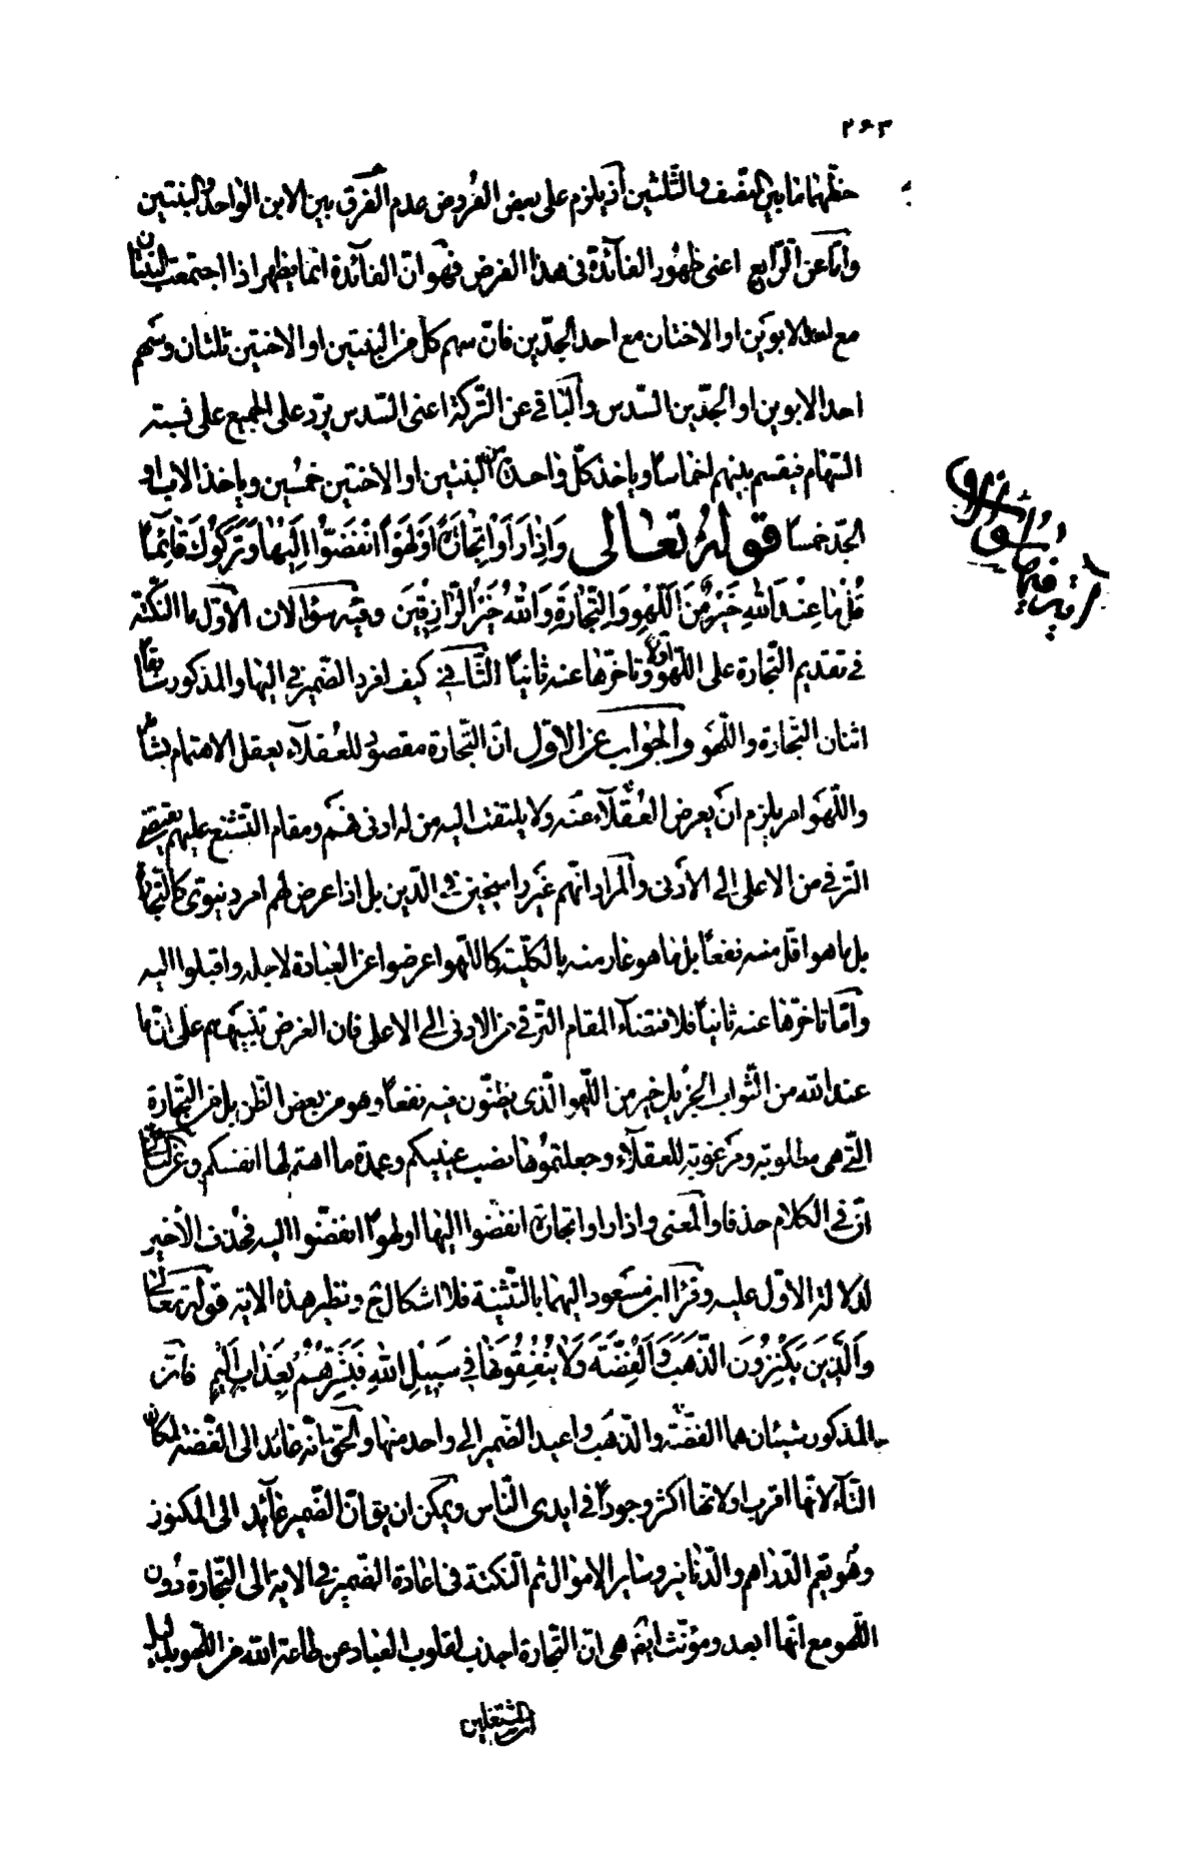 ٢٤٣
حظّهما ما بين النّصف والثّلثين اذ يلزم على بعض الفروض عدم الفرق بين الابن الواحد والبنتين
وامّا عن الرّابع اعنى ظهور الفآئدة فى هذا الفرض فهو انّ الفآئدة انّما يظهر اذا اجتمعت البنتان
مع احد الابوين او الاختان مع احد الجدّين فانّ سهم كلّ من البنتين او الاختين ثلثان وسهم
احد الابوين او الجدّين السّدس والباقى عن التّركة اعنى السّدس يردّ على الجميع على نسبة
السّهام فيقسم بينهم اخماسا وياخذ كلّ واحدة من البنتين او الاختين خمسين وياخذ الاب او
الجدّ خمسا قوله تعالى وَاِذَا رَاَوْا تِجَارَةً اَوْ لَهْوًا انْفَضُّوا اِلَيْهَا وَتَرَكُوكَ قَائِمًا
قُلْ مَا عِنْدَ اللّٰهِ خَيْرٌ مِنَ اللَّهْوِ وَالتِّجَارَةِ وَاللّٰهُ خَيْرُ الرَّازِقِينَ وفيه سؤالان الاوّل ما النّكتة
فى تقديم التّجارة على اللّهو اولا وتاخّرها عنه ثانيا الثّانى كيف افرد الضّمير فى اليها والمذكور سابقا
اثنان التّجارة واللّهو والجواب عن الاوّل انّ التّجارة مقصود للعقلآء يعقل الاهتمام بشانها
واللّهو امر يلزم ان يعرض العقلآء عنه ولا يلتفت اليه من له ادنى فهم ومقام التّشنيع عليهم يقتضى
التّرقى من الاعلى الى الادنى والمراد انّهم غير راسخين فى الدّين بل اذا عرض لهم امر دنيوى كالتّجارة
بل ما هو اقلّ منه نفعا بل ما هو عار منه بالكلّية كاللّهو اعرضوا عن العبادة لاجله واقبلوا اليه
وامّا تاخّرها عنه ثانيا فلاقتضآء المقام التّرقى من الادنى الى الاعلى فان الغرض تنبيههم على انّ ما
عند الله من الثّواب الجزيل خير من اللّهو الّذى يظنّون فيه نفعا وهو من بعض الظّن بل من التّجارة
الّتى هى مطلوبة ومرغوبة للعقلآء وجعلتموها نصب عينيكم وعمدة ما اهتم لها انفسكم وعن الثّانى
انّ فى الكلام حذفا والمعنى واذا راوا تجارة انفضّوا اليها او لهوا انفضّوا اليه فحذف الأخير
لدلالة الاوّل عليه وقرا ابن مسعود اليهما بالتّثنية فلا اشكال ح ونظير هذه الاية قوله تعالى
وَالَّذِينَ يَكْنِزُونَ الذَّهَبَ وَالْفِضَّةَ وَلَا يُنْفِقُونَهَا فِى سَبِيلِ اللّٰهِ فَبَشِّرْهُمْ بِعَذَابٍ اَلِيمٍ فانّ
المذكور شيئان هما الفضّة والذّهب واعيد الضّمير الى واحد منها والحقّ بانّه عائد الى الفضّة لمكان
التآء لانّها اقرب او لانّها اكثر وجودا فى ايدى النّاس ويمكن ان يق انّ الضّمير عآئد الى المكنوز
وهو يعم الدّراهم والدّنانير وساير الاموال ثم النّكتة فى اعادة الضّمير فى الاية الى التّجارة دون
اللّهو مع انّها ابعد ومؤنّث ايضا هى انّ التّجارة اجذب لقلوب العباد عن طاعة الله من اللّهو بدليل
انّ المشتغلين
آية فيها